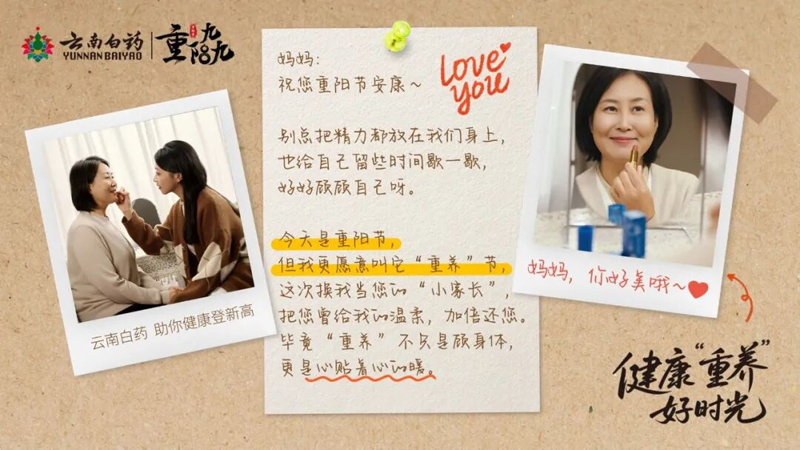 云南白药
YUNNAN BAIYAO
重阳九九
妈妈：
祝您重阳节安康～
Love
you
别总把精力都放在我们身上，
也给自己留些时间歇一歇，
好好顾顾自己呀。
今天是重阳节，
但我更愿意叫它“重养”节，
这次换我当您的“小家长”，
把您曾给我的温柔，加倍还您。
毕竟“重养”不只是顾身体，
更是心贴着心的暖。
云南白药 助你健康登新高
妈妈，你好美哦～
健康“重养”
好时光